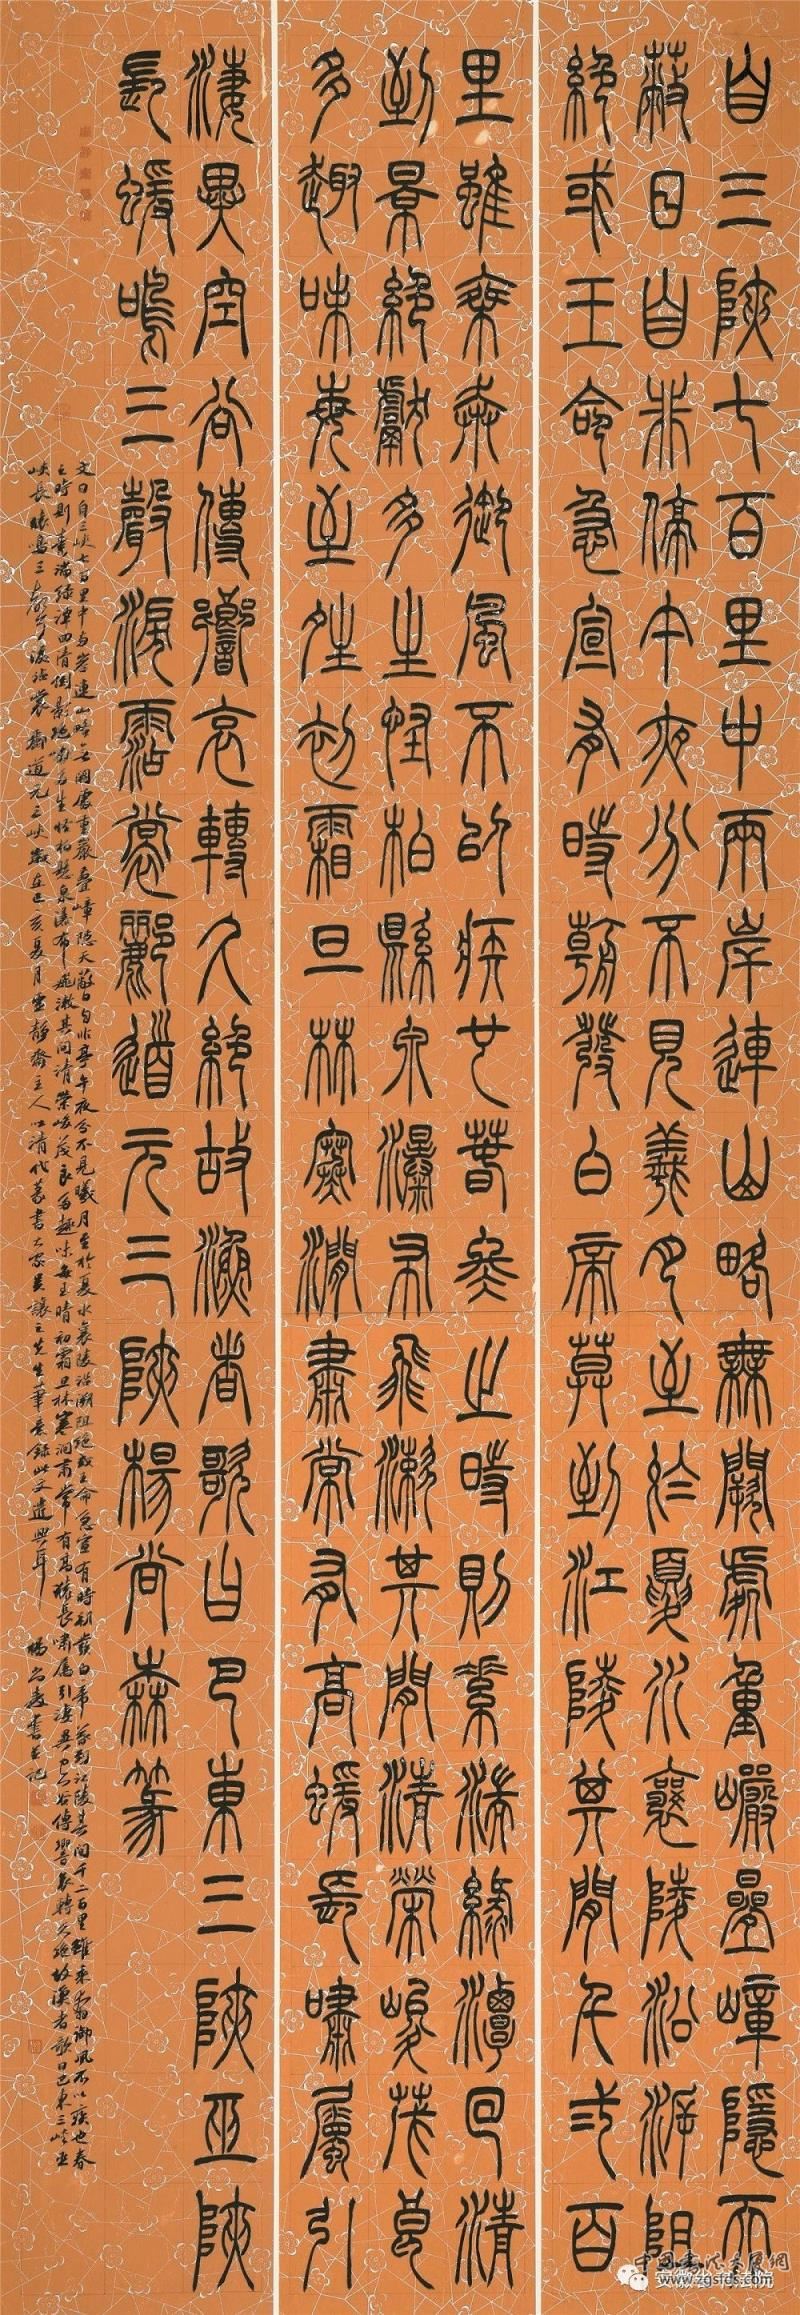 自三陝七百里中兩岸連山略無闕處重巖疊嶂隱天
蔽日自非停午夜分不見羲月至於夏水襄陵沿泝阻
絕或王命急宣有時朝發白帝莫到江陵其間千弍百
里雖乘奔御風不以疾也春冬之時則素湍綠潭回清
到景絕巘多生怪柏縣泉瀑布飛漱其間清榮峻茂良
多趣味每至晴初霜旦林寒澗肅常有高猨長嘯屬引
淒異空谷傳響哀轉久絕故漁者歌曰巴東三陝巫陝
長猨鳴三聲淚霑裳酈道元三陝楊尚森篆
文曰自三峽七百里中兩岸連山略無闕處重巖疊嶂隱天蔽日自非亭午夜分不見曦月至於夏水襄陵沿溯阻絕或王命急宣有時朝發白帝暮到江陵其間千二百里雖乘奔御風不以疾也春
冬之時則素湍綠潭回清倒影絕巘多生怪柏懸泉瀑布飛漱其間清榮峻茂良多趣味每至晴初霜旦林寒澗肅常有高猿長嘯屬引淒異空谷傳響哀轉久絕故漁者歌曰巴東三峽巫
峽長猿鳴三聲淚沾裳 酈道元三峽 歲在己亥夏月虛靜齋主人以清代篆書大家吳讓之先生筆意錄此文遣興耳 楊尚森書並記
www.zgsfds.com